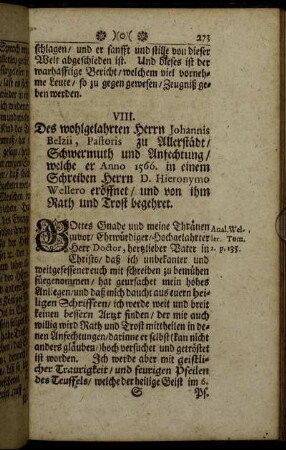 273
schlagen / und er sanfft und stille von dieser
Welt abgeschieden ist. Und dieses ist der
warhafftige Bericht / welchem viel vornehme
Leute / so zu gegen gewesen / Zeugniß geben
werden.
VIII.
Des wohlgelahrten Herrn Johannis
Belzii, Pastoris zu Allerstädt /
Schwermuth und Anfechtung /
welche er Anno 1566. in einem
Schreiben Herrn D. Hieronymo
Wellero eröffnet / und von ihm
Rath und Trost begehret.
GOttes Gnade und meine Thränen
zuvor / Ehrwürdiger / Hochgelahrter
Herr Doctor, hertzlieber Vater in
Christo / daß ich unbekanter und
weitgesessener euch mit schreiben zu bemühen
fürgenonnen / hat geursachet mein hohes
Anliegen / und daß mich daucht aus euern heiligen
Schrifften / ich werde weit und breit
keinen bessern Artzt finden / der mit auch
willig wird Rath und Trost mittheilen in denen
Anfechtungen / darinne er selbst (kan nicht
anders gläuben /) hoch versuchet und getröstet
ist worden. Ich werde aber mit geistlicher
Traurigkeit / und feurigen Pfeilen
des Teuffels / welche der heilige Geist im 6.
S Ps.
Anal. Wel-
ler. Tom.
2. p. 135.